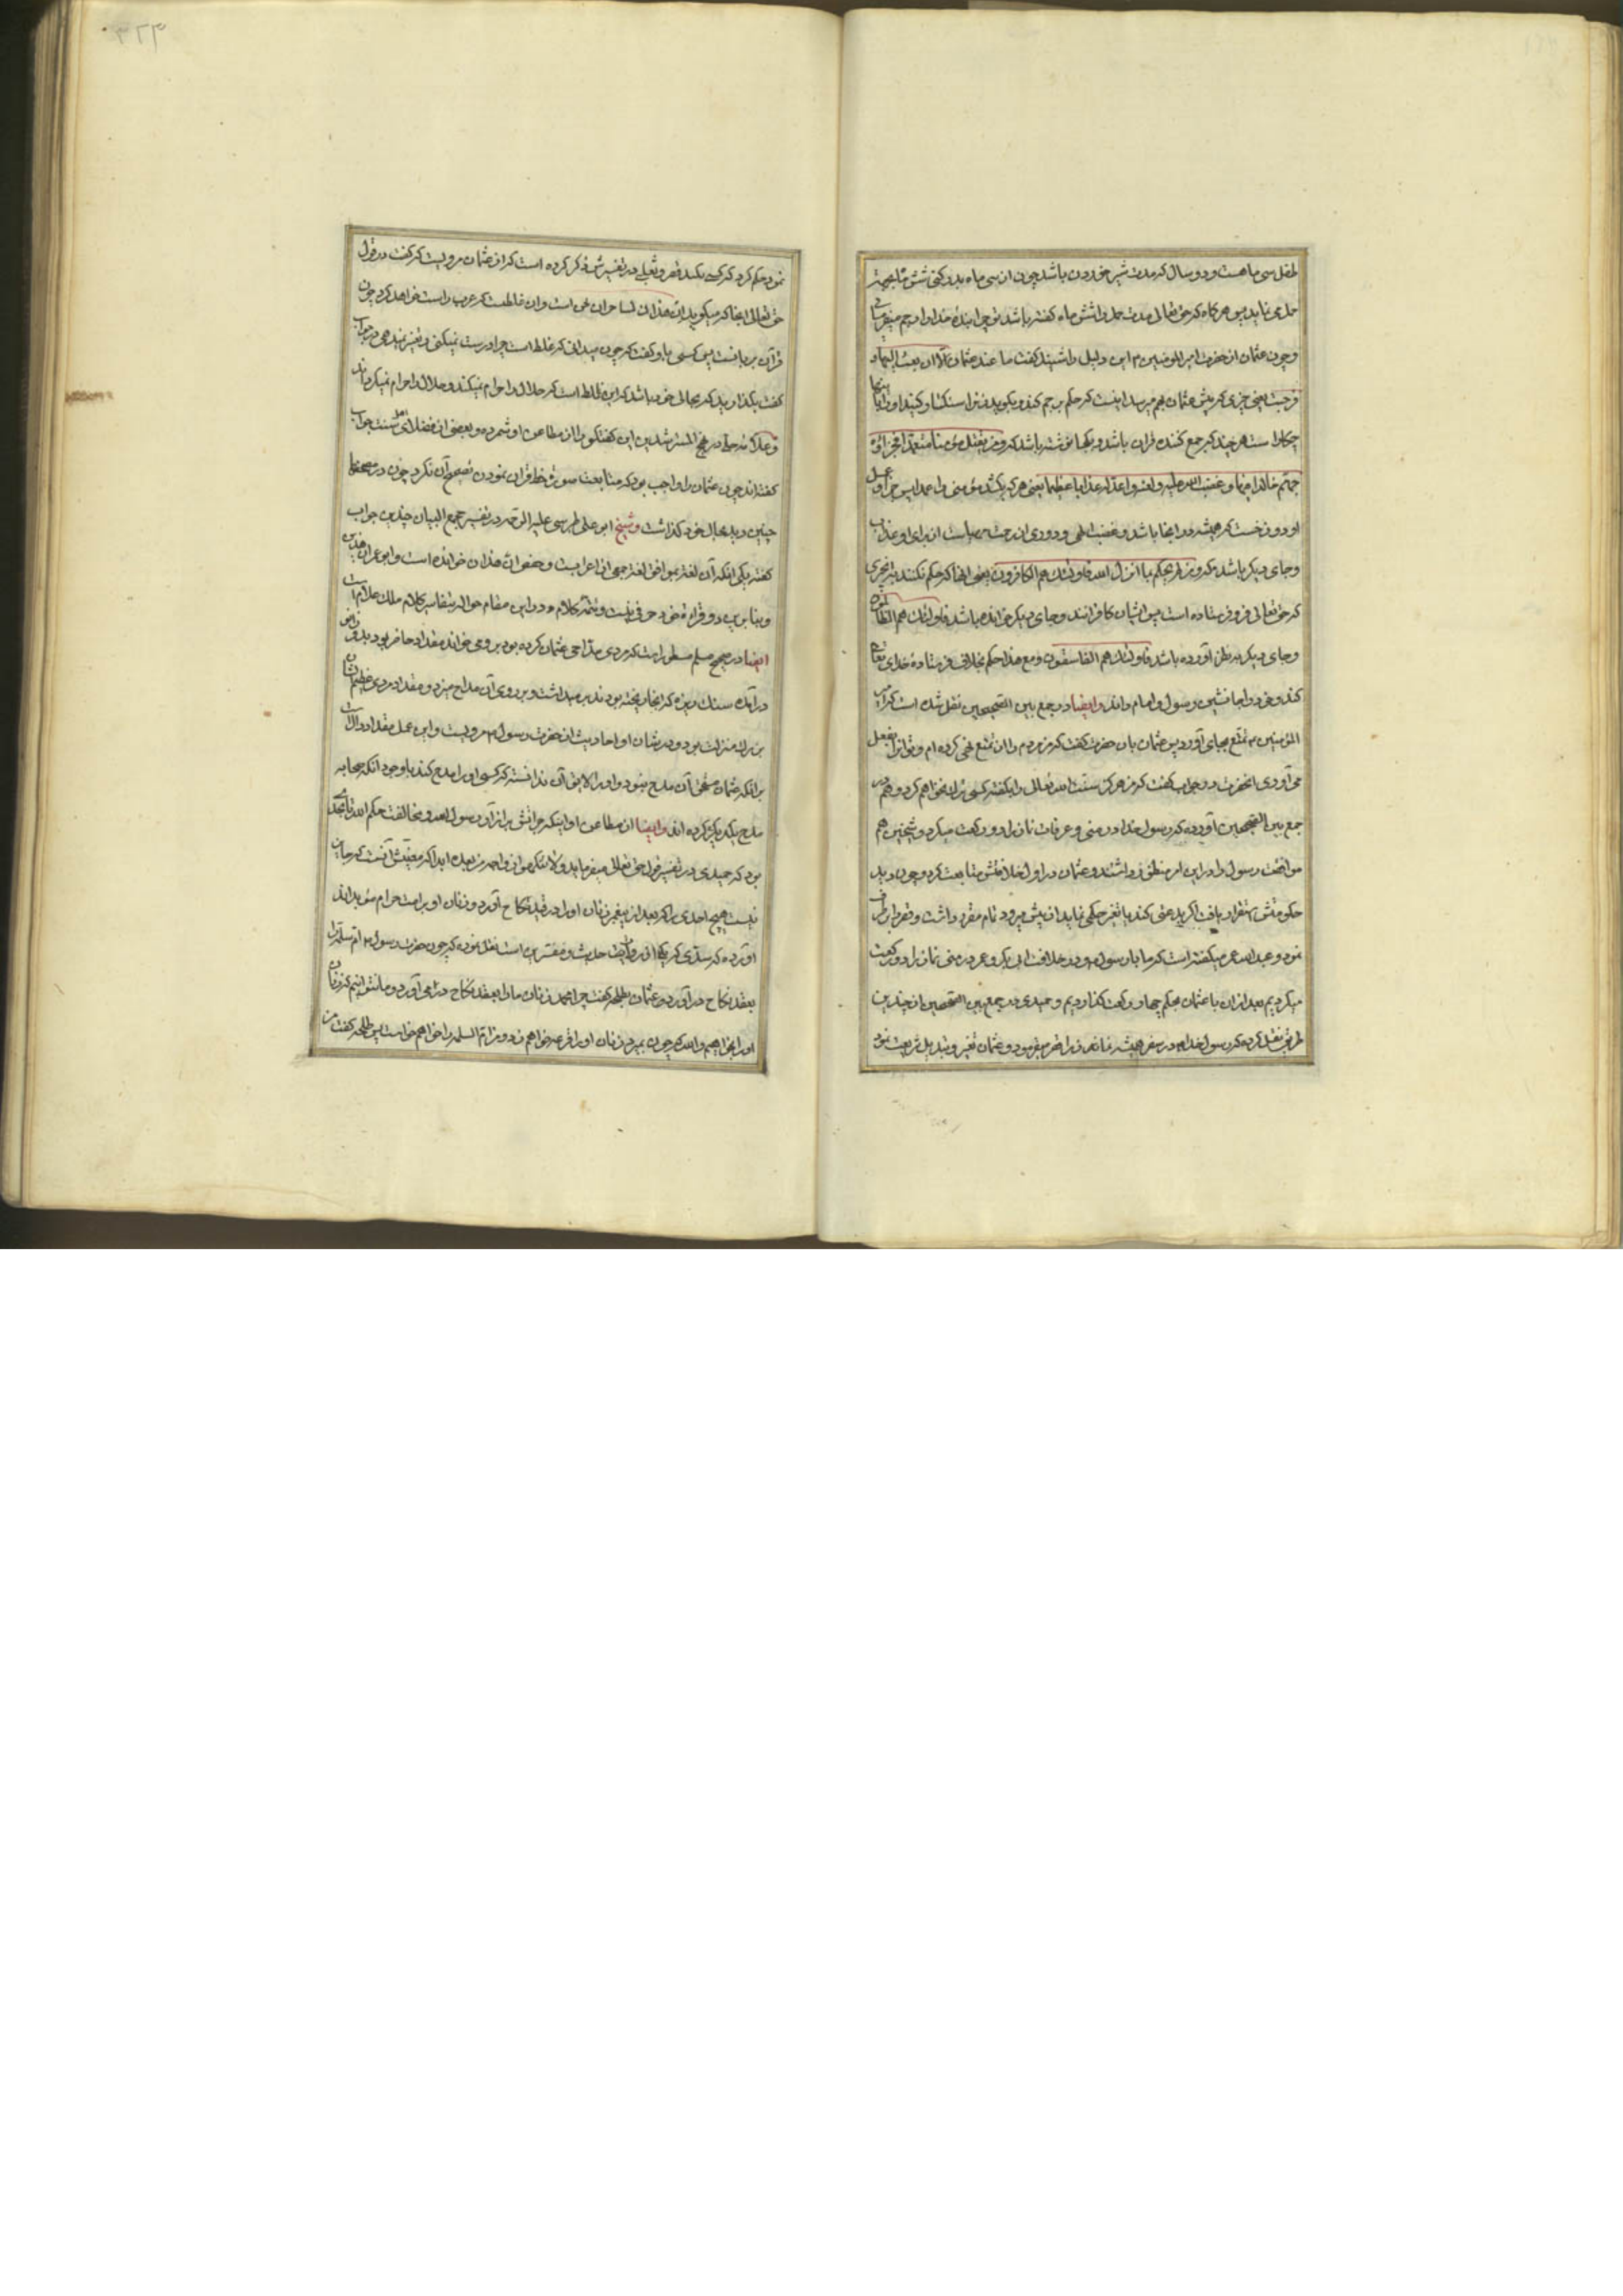 طفل سی ماهست و دو سال که مدت شیر خوردن باشد چون از سی ماه بدر کنی شش ماه بجهة
حمل می نماید پس هرگاه که حق تعالی مدت حمل را شش ماه گفته باشد تو چرا بندۀ خدا را رجم میفرمائی
و چون عثمان از حضرت امیر المومنین این دلیل را شنید گفت ما عند عثمان الا ان بعث الیها
فرجمت یعنی چیزی که پیش عثمان بهم میرسد اینست که حکم برجم کند و بگوید زنرا سنگسار کنید او را باینها
چکار است هر چند که جمع کننده قران باشد و یکجا نوشته باشد که و من یقتل مؤمنا متعمدا فجزاؤه
جهنم خالدا فیها و غضب الله علیه و لعنه و اعد له عذابا عظیما یعنی هر که بکشد مؤمنی را عمدا پس جزای عمل
او دوزخست که همیشه در انجا باشد و غضب الهی و دوری از رحمت از برای او عذاب
و جای دیگر باشد که و من لم یحکم بما انزل الله فاولئک هم الکافرون یعنی انها که حکم نکنند به انچیزی
که حق تعالی فرو فرستاده است پس ایشان کافرانند و جای دیگر خوانده باشد فاولئک هم الظالمون
و جای دیگر بنظر آورده باشد فاولئک هم الفاسقون و مع هذا حکم بخلاف فرستادۀ خدای تعالی
کند و خود را جانشین رسول و امام داند و ایضا در جمع بین الصحیحین نقل شده است که امیر
المؤمنین تمتع بجای آورد پس عثمان بان حضرت گفت که من مردم را از تمتع نهی کرده ام و تو انرا بفعل
می آوردی انحضرت در جواب گفت که من هرگز سنت الله تعالی را بگفته کسی ترک نخواهم کرد و هم در
جمع بین الصحیحین آورده که رسول خدا در منی و عرفات نماز را دو رکعت میکرد و شیخین هم
موافقت رسول را در این امر منظور داشتند و عثمان در اول خلافتش متابعت کرد و چون دید
حکومتش استقرار یافت اگر بدعتی کند یا تغیر حکمی نماید از پیش میرود تمام مقرر داشت و قصر را برطرف
نمود و عبدالله عمر میگفته است که ما با رسول و در خلافت ابی بکر و عمر در منی نماز را دو رکعت
میکردیم بعد از ان با عثمان بحکم چهار رکعت گذاردیم و حمیدی در جمع بین الصحیحین از چندین
طریق نقل کرده که رسول خدا در سفر همیشه نماز را قصر میفرمود و عثمان تغیر و تبدیل شریعت نمود
نمود و حکم کرد که کسی نکند قصر و ثعلبی در تفسیرش ذکر کرده است که از عثمان مرویست که گفت در قول
حق تعالی انجا که میگوید ان هذان لساحران لحن است و ان غلطست که عرب راست خواهد کرد چون
قرآن بزبانست پس کسی باو گفت که چون میدانی که غلط است چرا درست نمیکنی و تغییر نمیدهی در جواب
گفت بگذارید که بحالی خود باشد که این غلط است که حلال را حرام نمیکند و حلال را حرام نمیگرداند
و علامه حلی در نهج المسترشدین این گفتگو را از مطاعن او شمرده و بعضی از فضلای اهل سنت جواب
گفته اند چون عثمان را واجب بود که متابعت صورة خط قران نمودن تصحیح آن نکرد چون در مصحفها
چنین دید بحال خود گذاشت و شیخ ابو علی طبرسی علیه الرحمه در تفسیر مجمع البیان چندین جواب
گفته یکی انکه آن لغتیه موافق لغة جمعی از اعرابست و حفص ان هذان خوانده است و ابو عمرو ان هذین
و بنابرین دو قراءة خود حرفی نیست و تتمه کلام در این مقام حواله بتفاسیر کلام ملک علام است
ایضا در صحیح مسلم مسطور است که مردی مداحی عثمان کرده بود برو می خواند مقداد حاضر بود بدو زانو
درآمده سنک ریزه که انجا ریخته بودند بر میداشت و بر روی آن مداح میزد و مقداد مردی عظیم الشان
بزرک منزلت بود و در شان او احادیث از حضرت رسول مرویست و این عمل مقداد دال است
بر انکه عثمان مستحق آن مدح نبود و او را لایق آن ندانسته که کسی او را مدح کند با وجود انکه صحابه
مدح یکدیگر کرده اند و ایضا از مطاعن او اینکه جرأتش بر ازار رسول الله و مخالفت حکم الله تا بحدی
بود که حمیدی در تفسیر قول حق تعالی میفرماید و لا تنکحوا ازواجه من بعده ابدا که معنیش آنست که جایز
نیست هیچ احدی را که بعد از پیغمبر زنان او را در قید نکاح آورد و زنان او بر امت حرام مؤبد اند
آورده که سدی که یکی از رواة حدیث و مفسرین است نقل نموده که چون حضرت رسول ام سلمه را
بعقد نکاح درآورد عثمان بطلحه گفت چرا محمد زنان ما را بعقد نکاح در می آورد و ما نتوانیم که زنان
او را بخواهیم والله که چون بمیرد زنان او را قرعه خواهم زد و من ام السلمه را خواهم خواست پس طلحه گفت من